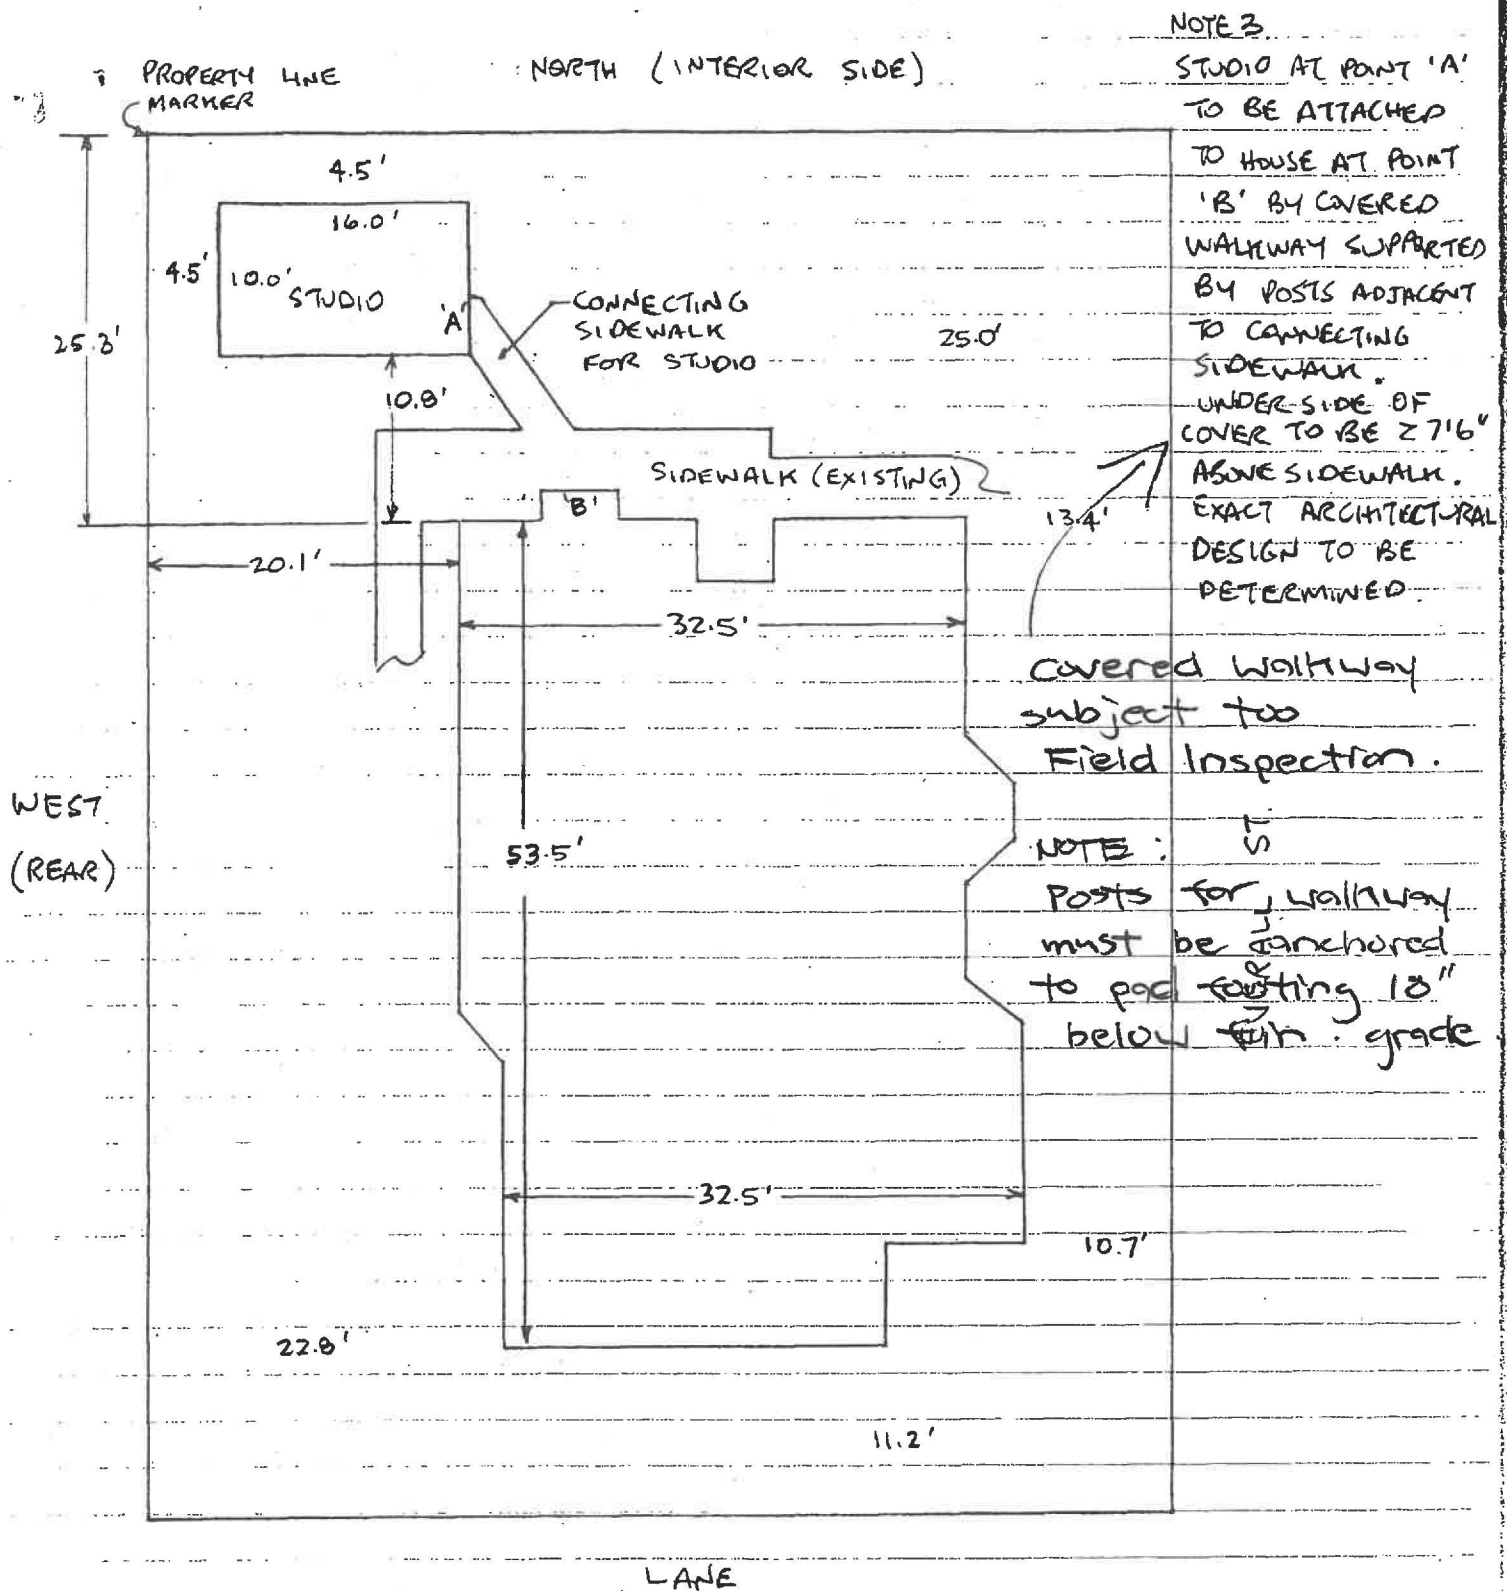 NOTE 3
PROPERTY LINE
MARKER
NORTH (INTERIOR SIDE)
STUDIO AT POINT 'A'
TO BE ATTACHED
TO HOUSE AT POINT
'B' BY COVERED
WALKWAY SUPPORTED
BY POSTS ADJACENT
TO CONNECTING
SIDEWALK.
UNDERSIDE OF
COVER TO BE ≥ 7'6"
ABOVE SIDEWALK.
EXACT ARCHITECTURAL
DESIGN TO BE
DETERMINED.
4.5'
16.0'
4.5'
10.0'
STUDIO
'A'
CONNECTING
SIDEWALK
FOR STUDIO
25.3'
25.0'
10.8'
SIDEWALK (EXISTING)
'B'
13.4'
20.1'
32.5'
covered walkway
subject too
Field Inspection.
WEST
(REAR)
53.5'
NOTE:
Posts for walkway
must be anchored
to pad footing 18"
below fin. grade
ST.
32.5'
10.7'
22.8'
11.2'
LANE